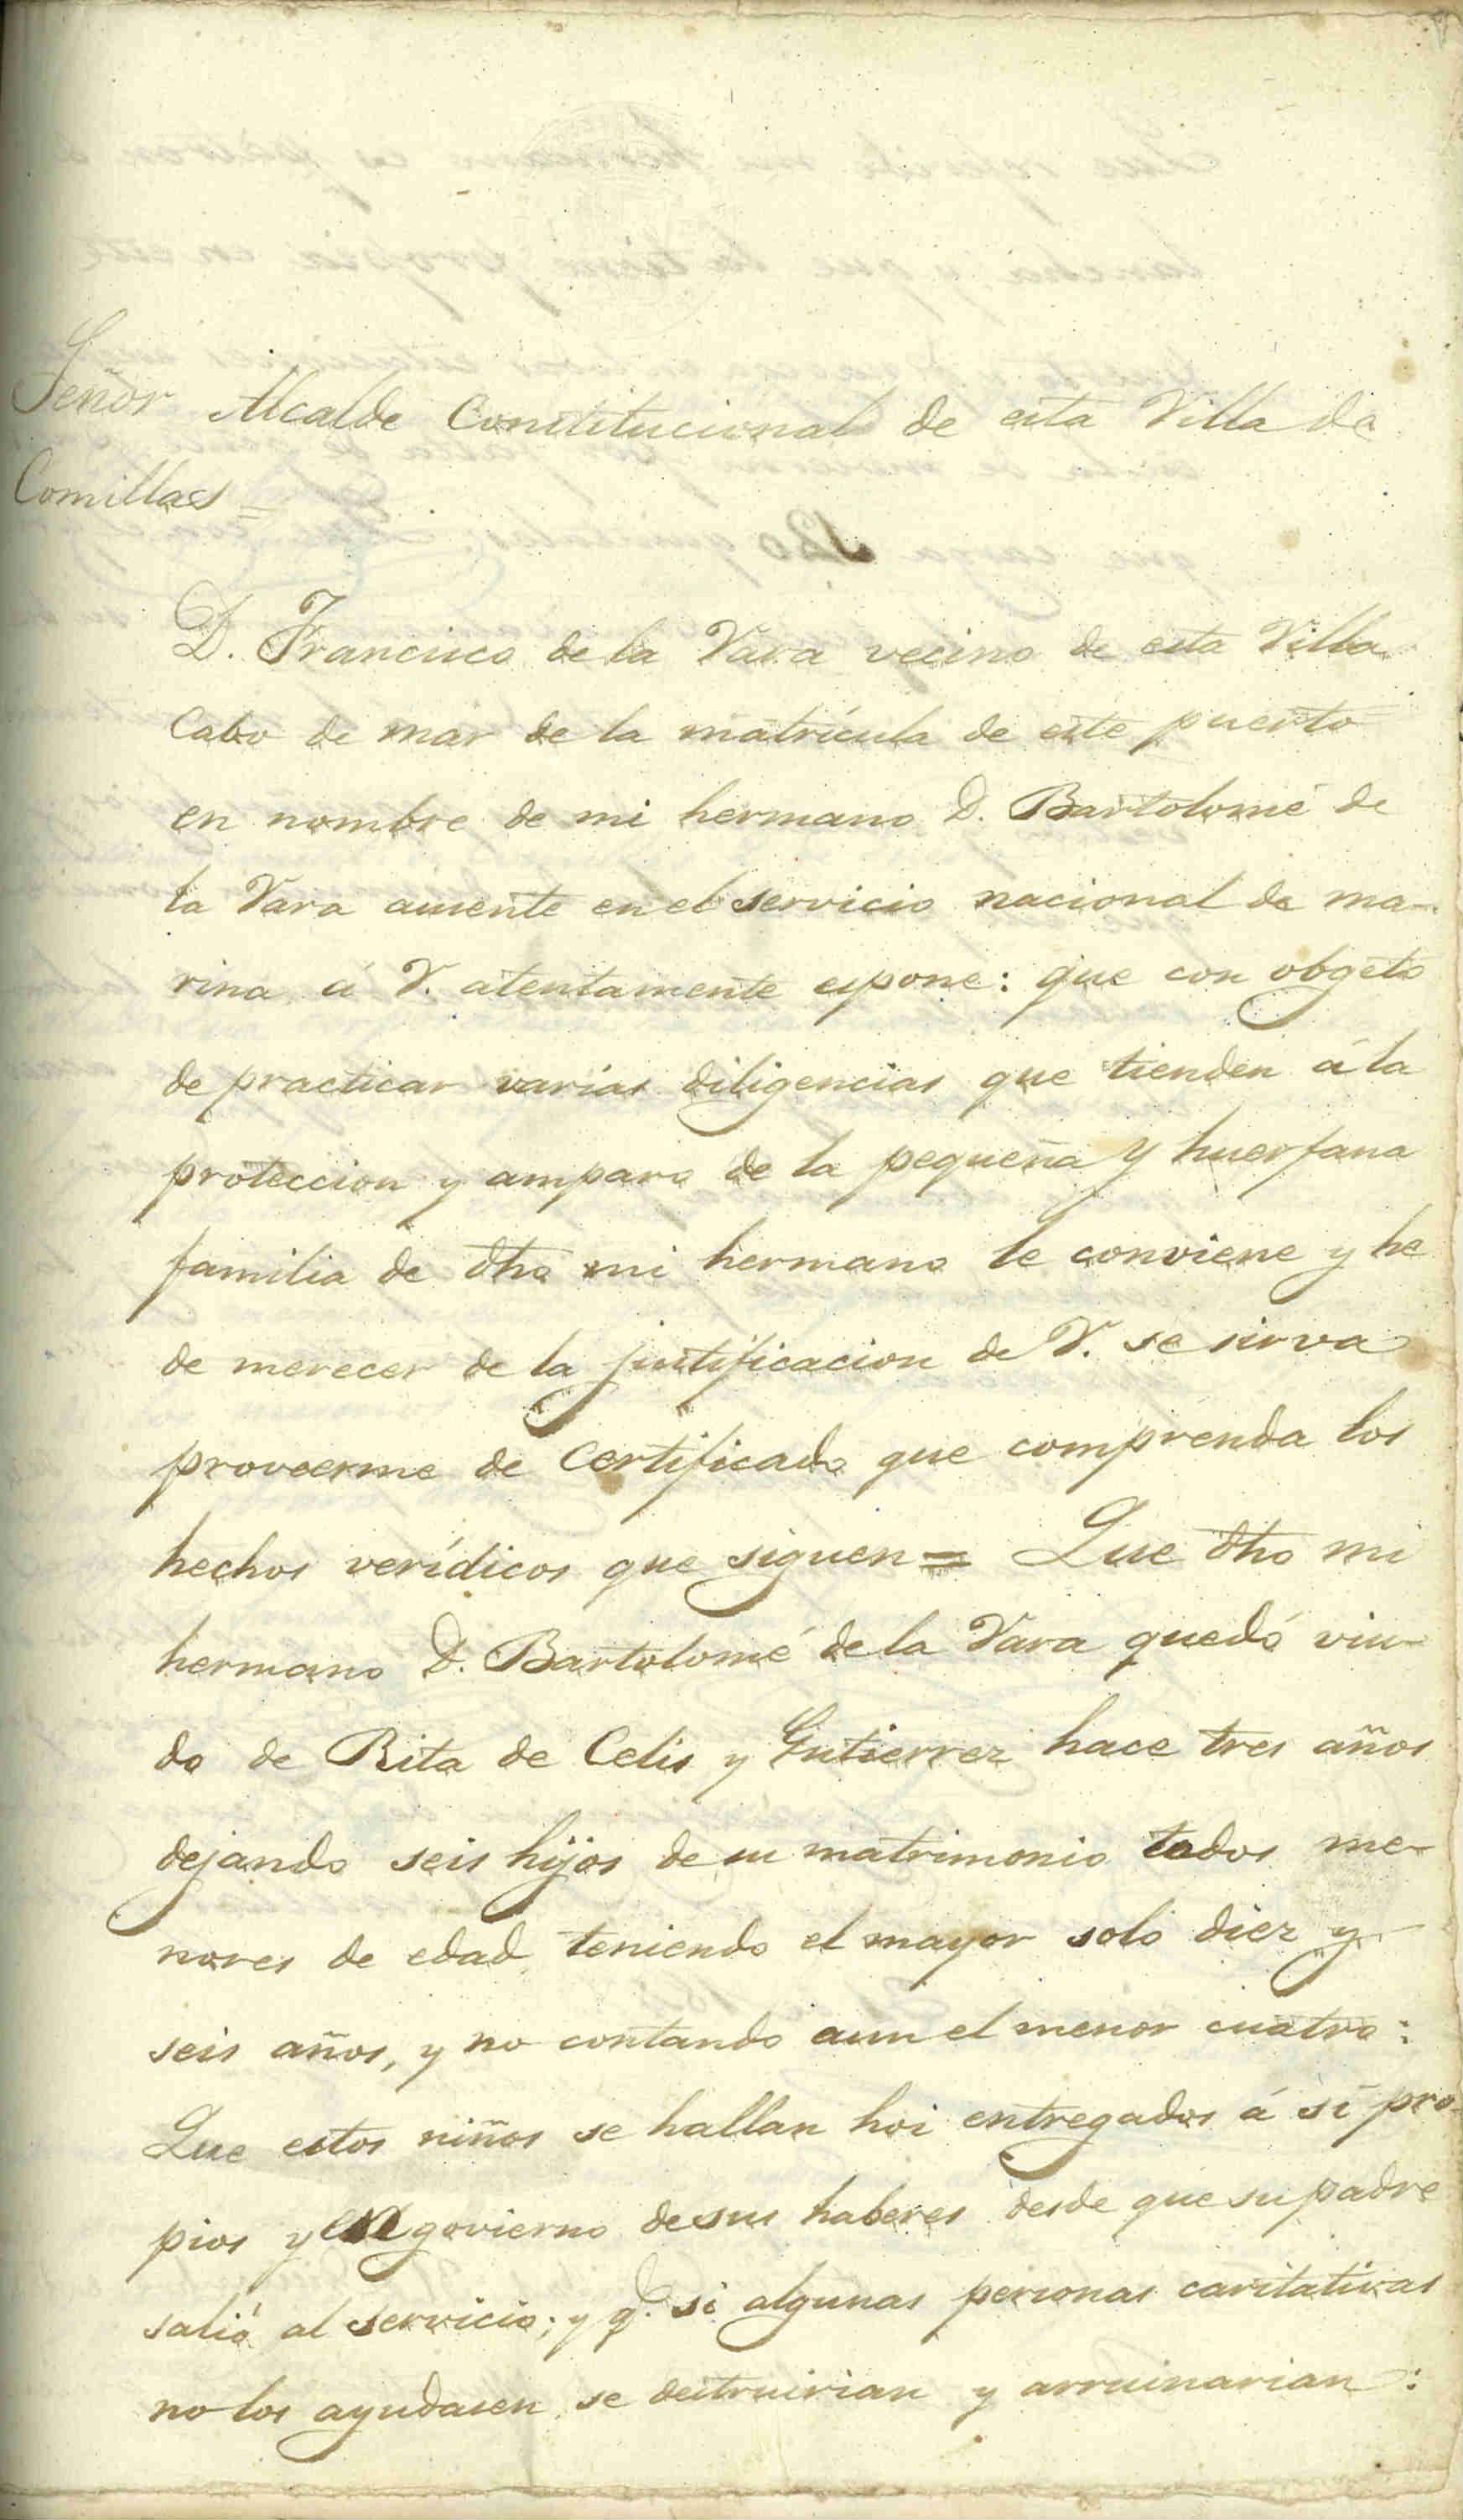 Señor Alcalde Constitucional de esta Villa de
Comillas =
D. Francisco de la Vara vecino de esta Villa
Cabo de mar de la matrícula de este puerto
en nombre de mi hermano D. Bartolomé de
la Vara ausente en el servicio nacional de ma-
rina á V. atentamente espone: que con obgeto
de practicar varias diligencias que tienden á la
proteccion y amparo de la pequeña y huerfana
familia de dho mi hermano le conviene y ha
de merecer de la justificacion de V. se sirva
proveerme de Certificado que comprenda los
hechos verídicos que siguen = Que dho mi
hermano D. Bartolomé de la Vara quedó viu-
do de Rita de Celis y Gutierrez hace tres años
dejando seis hijos de su matrimonio todos me-
nores de edad, teniendo el mayor solo diez y
seis años, y no contando aun el menor cuatro:
Que estos niños se hallan hoi entregados á sí pro-
pios y en govierno de sus haberes desde que su padre
salió al servicio; y q.e si algunas personas caritativas
no los ayudasen, se destruirian y arruinarian: